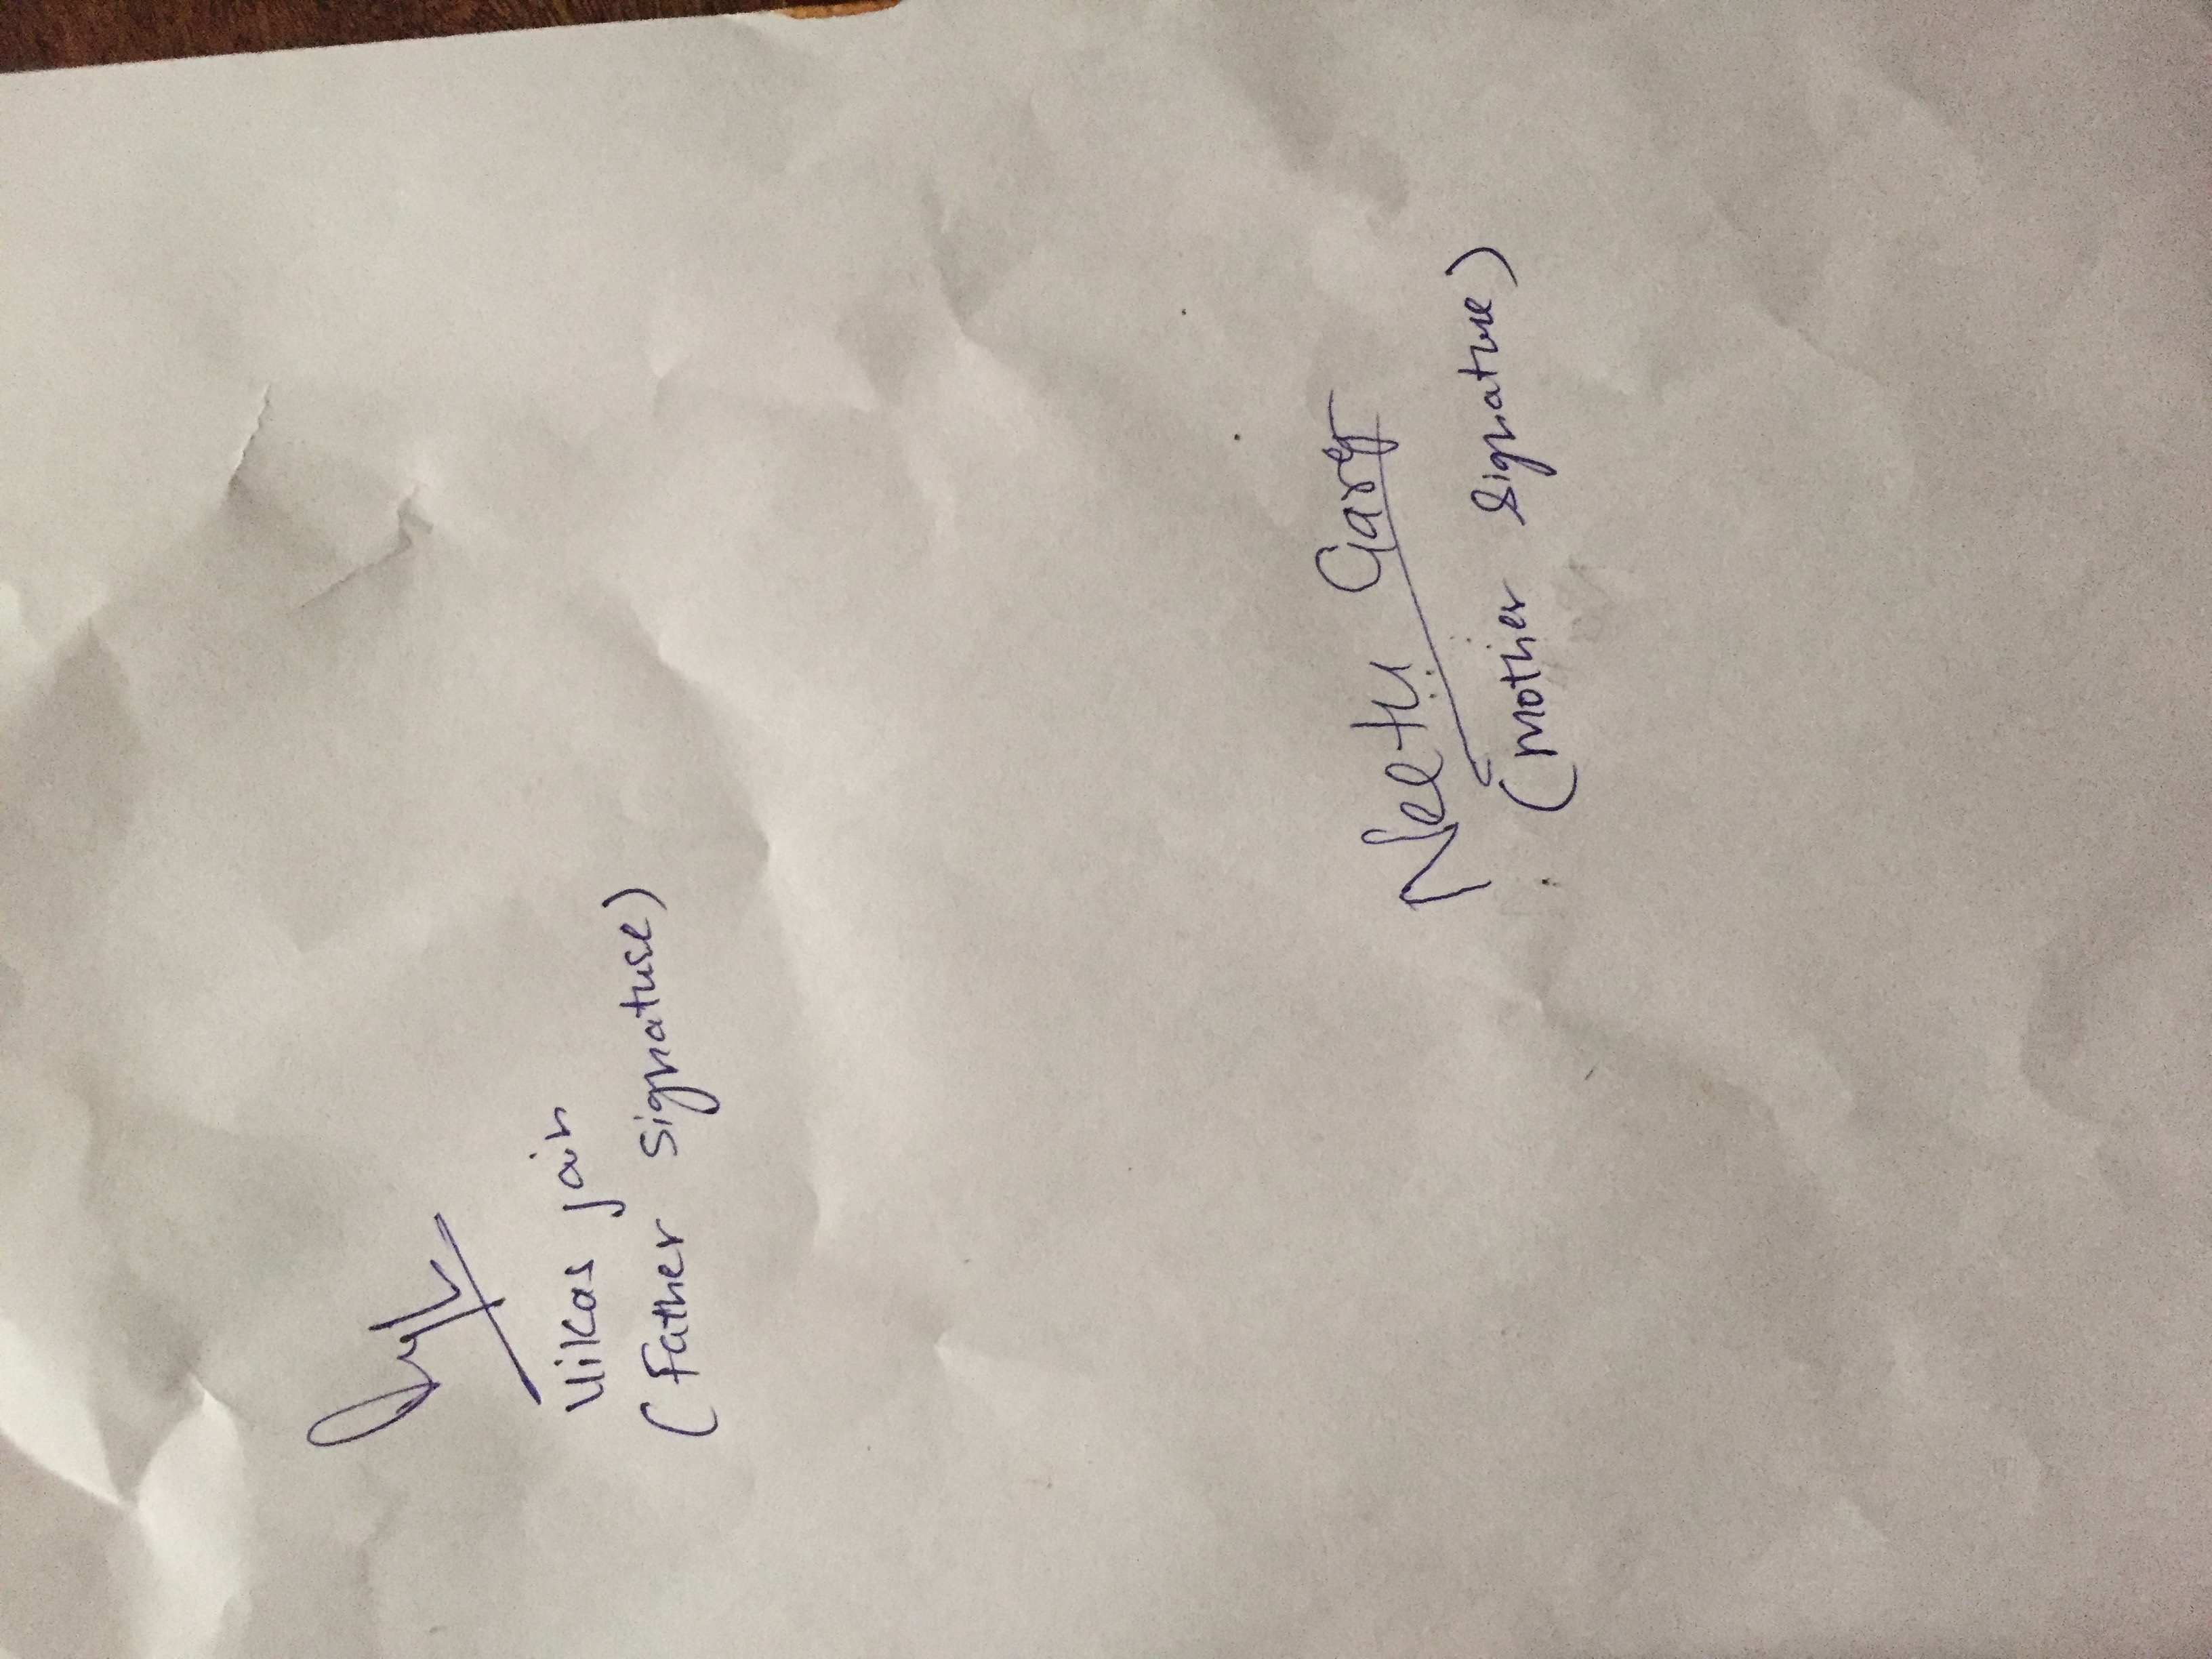 Vikas jain
(Father Signature)
Neetu Garg
(Mother Signature)